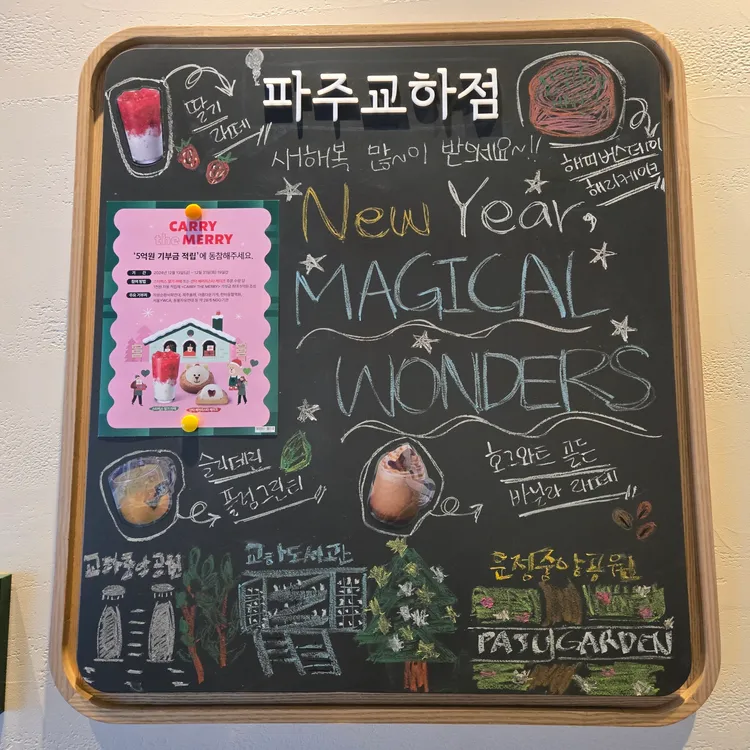 파주교하점
딸기
라떼
새해복 많~이 받으세요~!!
해피버스데이
해리케이크
New Year,
MAGICAL
WONDERS
CARRY
the MERRY
'5억원 기부금 적립'에 동참해주세요.
기 간
참여 방법
주요 기부처
슬리데린
플럼그린티
호그와트 골든
바닐라 라떼
교하중앙공원
교하도서관
운정중앙공원
PAJU GARDEN